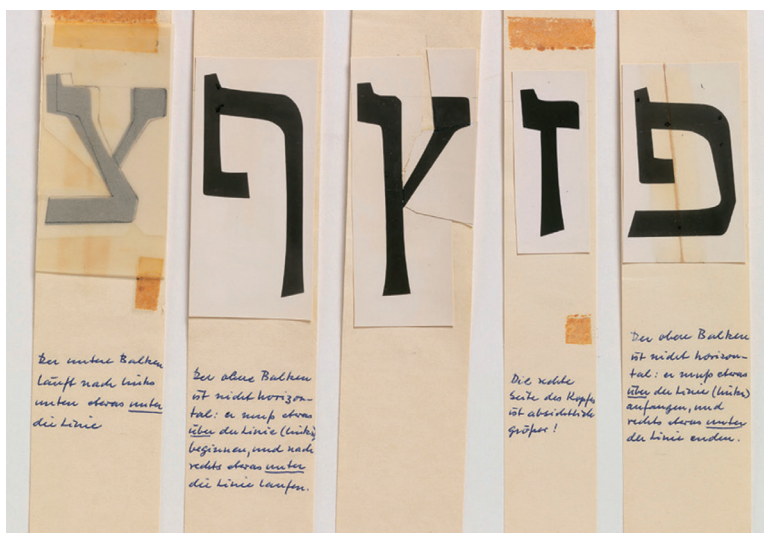 צ
Der untere Balken
läuft nach links
unten etwas unter
die Linie
ף
Der obere Balken
ist nicht horizon-
tal: er muß etwas
über der Linie (links)
beginnen, und nach
rechts etwas unter
die Linie laufen.
ץ
ז
Die rechte
Seite des Kopfes
ist absichtlich
größer!
פ
Der obere Balken
ist nicht horizon-
tal: er muß etwas
über der Linie (links)
anfangen, und
rechts etwas unter
der Linie enden.